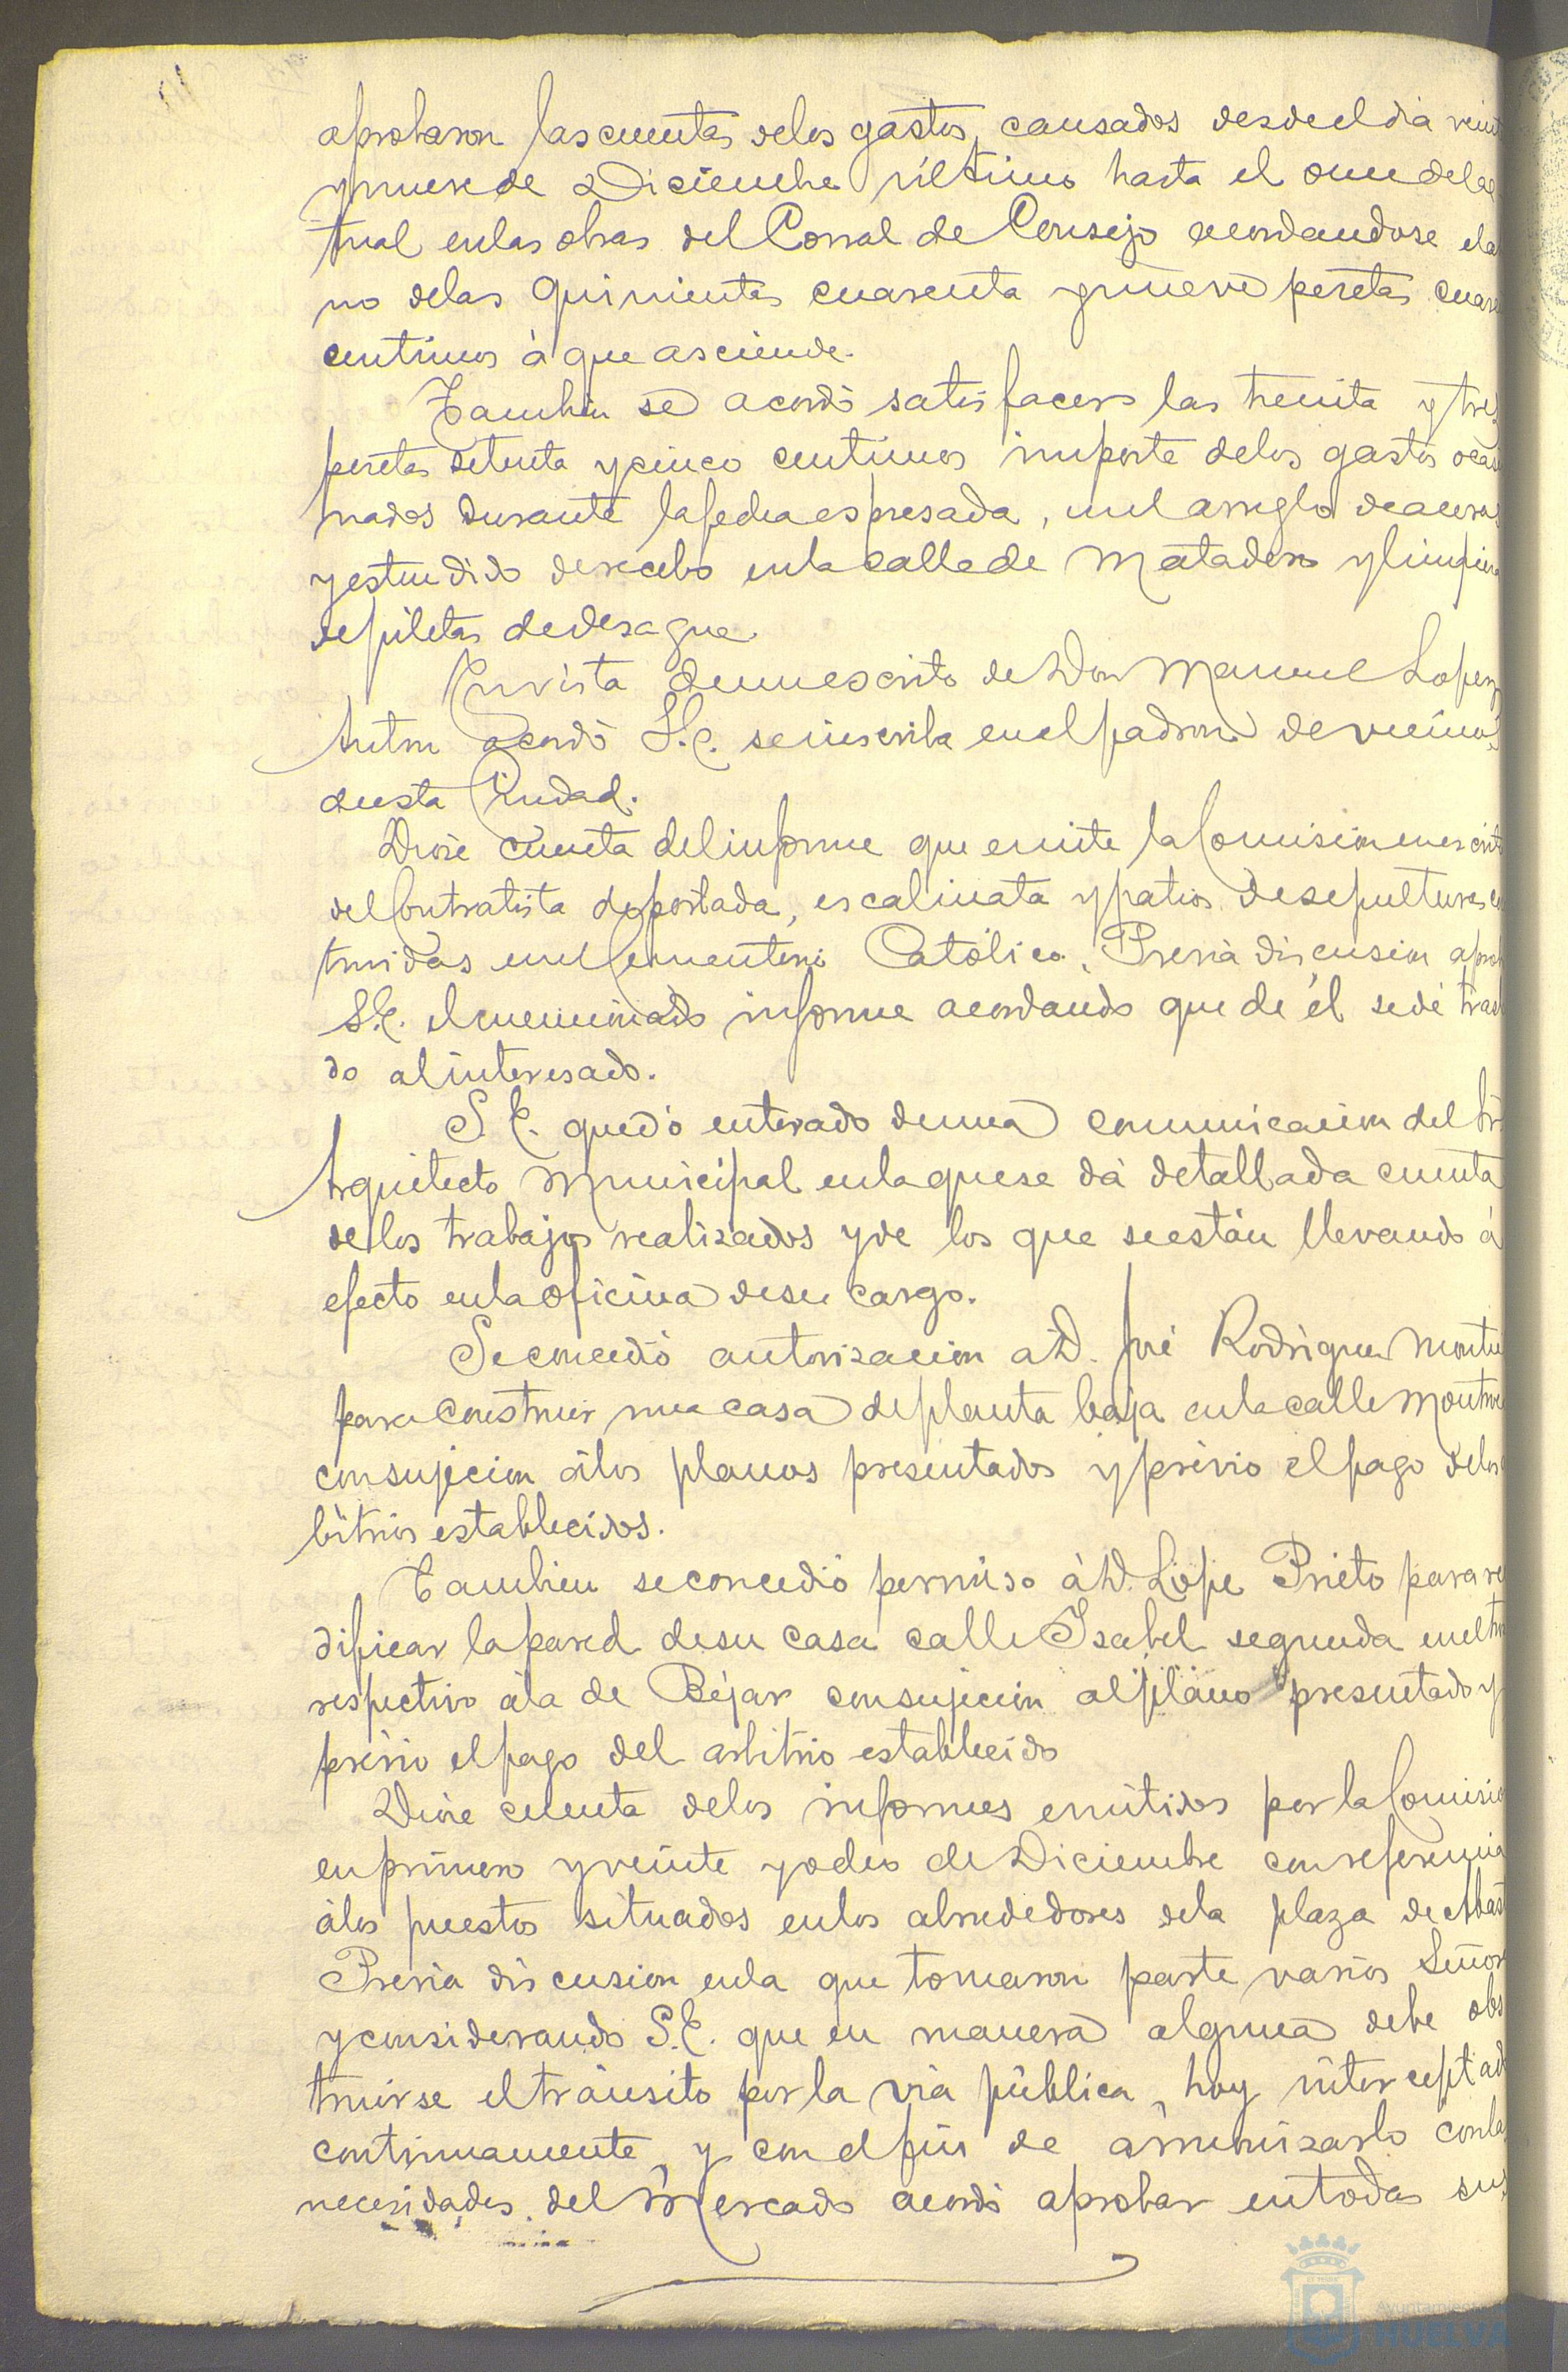 aprobaron las cuentas de los gastos, causados desde el dia veint
y nueve de Diciembre último hasta el once del ac
tual en las obras del Corral de Consejo acordandose el a
no de las quinientas cuarenta y nueve pesetas cuare
centimos á que asciende.
Tambien se acordó satisfacer las treinta y tres
pesetas setenta y cinco centimos importe de los gastos ocasi
nados durante la fecha espresada, en el arreglo de aceras
y estendido de recebo en la calle de Matadero y limpieza
de piletas de desague.
En vista de un escrito de Don Manuel Lopez
Anton acordó S.E. se inscriba en el padron de vecinos
de esta Ciudad.
Diose cuenta del informe que emite la Comision en escrito
del Contratista de portada, escalinata y patios de sepulturas co
truidas en el Cementerio Católico. Prévia discusion aprob
S.E. el mencionado informe acordando que de él se dé trasl
do al interesado.
S.E. quedó enterado de una comunicacion del Sr
Arquitecto Municipal en la que se dá detallada cuenta
de los trabajos realizados y de los que se están llevando á
efecto en la oficina de su cargo.
Se concedió autorizacion a D. José Rodriguez
para construir una casa de planta baja en la calle
con sujecion á los planos presentados y prévio el pago de los
bitrios establecidos.
Tambien se concedió permiso á D. Lope Prieto para re
dificar la pared de su casa calle Isabel segunda en el tro
respectivo á la de Béjar con sujecion al plano presentado y
prévio el pago del arbitrio establecido
Diose cuenta de los informes emitidos por la Comisio
en primero y veinte y ocho de Diciembre con referencia
á los puestos situados en los alrededores de la plaza de Abast
Prévia discusion en la que tomaron parte varios Señor
y considerando S.E. que en manera alguna debe obs
truirse el tránsito por la via pública, hoy interceptad
continuamente, y con el fin de armonizarlo con las
necesidades del Mercado acordó aprobar en todas sus
Ayuntamiento
HUELVA